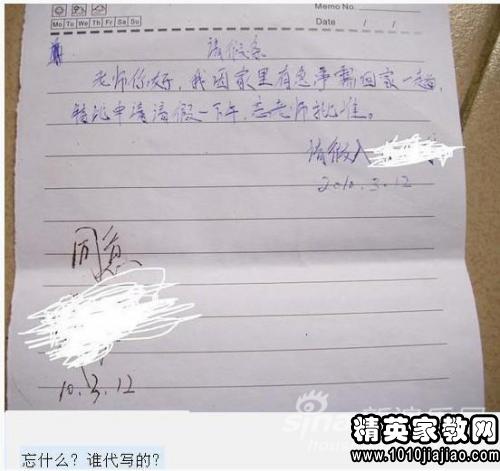 Memo No.
Mo Tu We Th Fr Sa Su
Date / /
请假条
老师你好，我因家里有急事需回家一趟，
特此申请请假一下午，忘老师批准。
请假人
2010.3.12
同意
10.3.12
sina
忘什么？谁代写的？
精英家教网
www.1010jiajiao.com